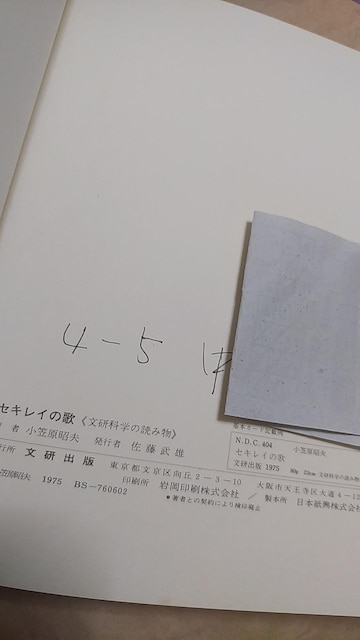 4-5
セキレイの歌《文研科学の読み物》
者 小笠原昭夫 発行者 佐藤武雄
行所 文研出版 東京都文京区向丘2-3-10 大阪市天王寺区大道4-12
印刷所 岩岡印刷株式会社 / 製本所 日本紙興株式会
小笠原昭夫 1975 BS-760602 ●著者との契約により検印廃止
基本カード記載例
N.D.C. 404 小笠原昭夫
セキレイの歌
文研出版 1975 80p 23cm 文研科学の読み物